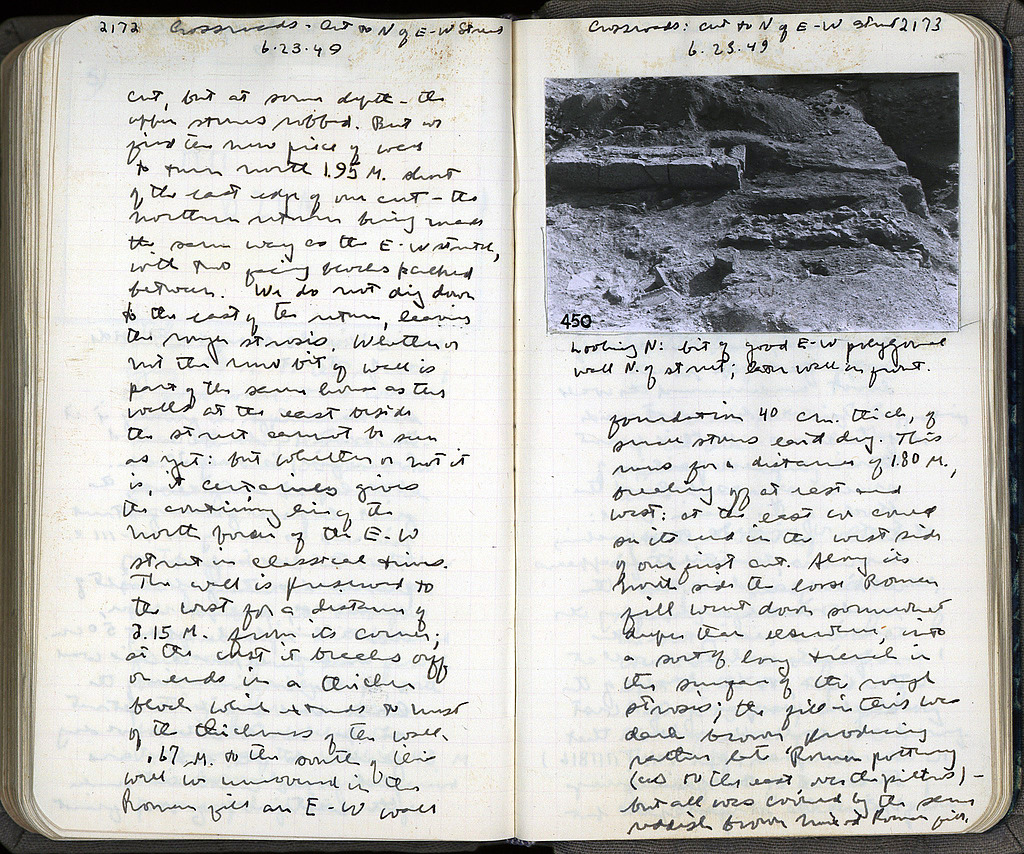 2172 Crossroads: Cut to N of E-W Street
6.23.49
cut, but at some depth - the
upper stones robbed. But we
find the new piece of wall
to turn north 1.95 M. short
of the east edge of our cut - the
northern return being made
the same way as the E-W stretch,
with two facing blocks packed
between. We do not dig down
to the east of the return, leaving
the rough strosis. Whether or
not the new bit of wall is
part of the same house as the
walls at the east beside
the street cannot be seen
as yet: but whether or not it
is, it certainly gives
the continuing line of the
north border of the E-W
street in classical times.
The wall is preserved to
the west for a distance of
3.15 M. from its corner;
at the east it breaks off
or ends in a thicker
block which extends to most
of the thickness of the wall.
.67 M. to the south of this
wall we uncovered in the
Roman fill an E-W wall
Crossroads: Cut to N of E-W Street 2173
6.23.49
450
Looking N: bit of good E-W polygonal
wall N. of street; later wall in front.
foundation 40 cm. thick, of
small stones laid dry. This
runs for a distance of 1.80 M.,
breaking off at east and
west: at the east we come
on its end in the west side
of our first cut. Along its
north side the loose Roman
fill went down somewhat
deeper than elsewhere, into
a sort of long trench in
the surface of the rough
strosis; the fill in this was
dark brown producing
rather late Roman pottery
(as on the east over the pithos) -
but all was covered by the same
reddish brown mixed Roman fill.